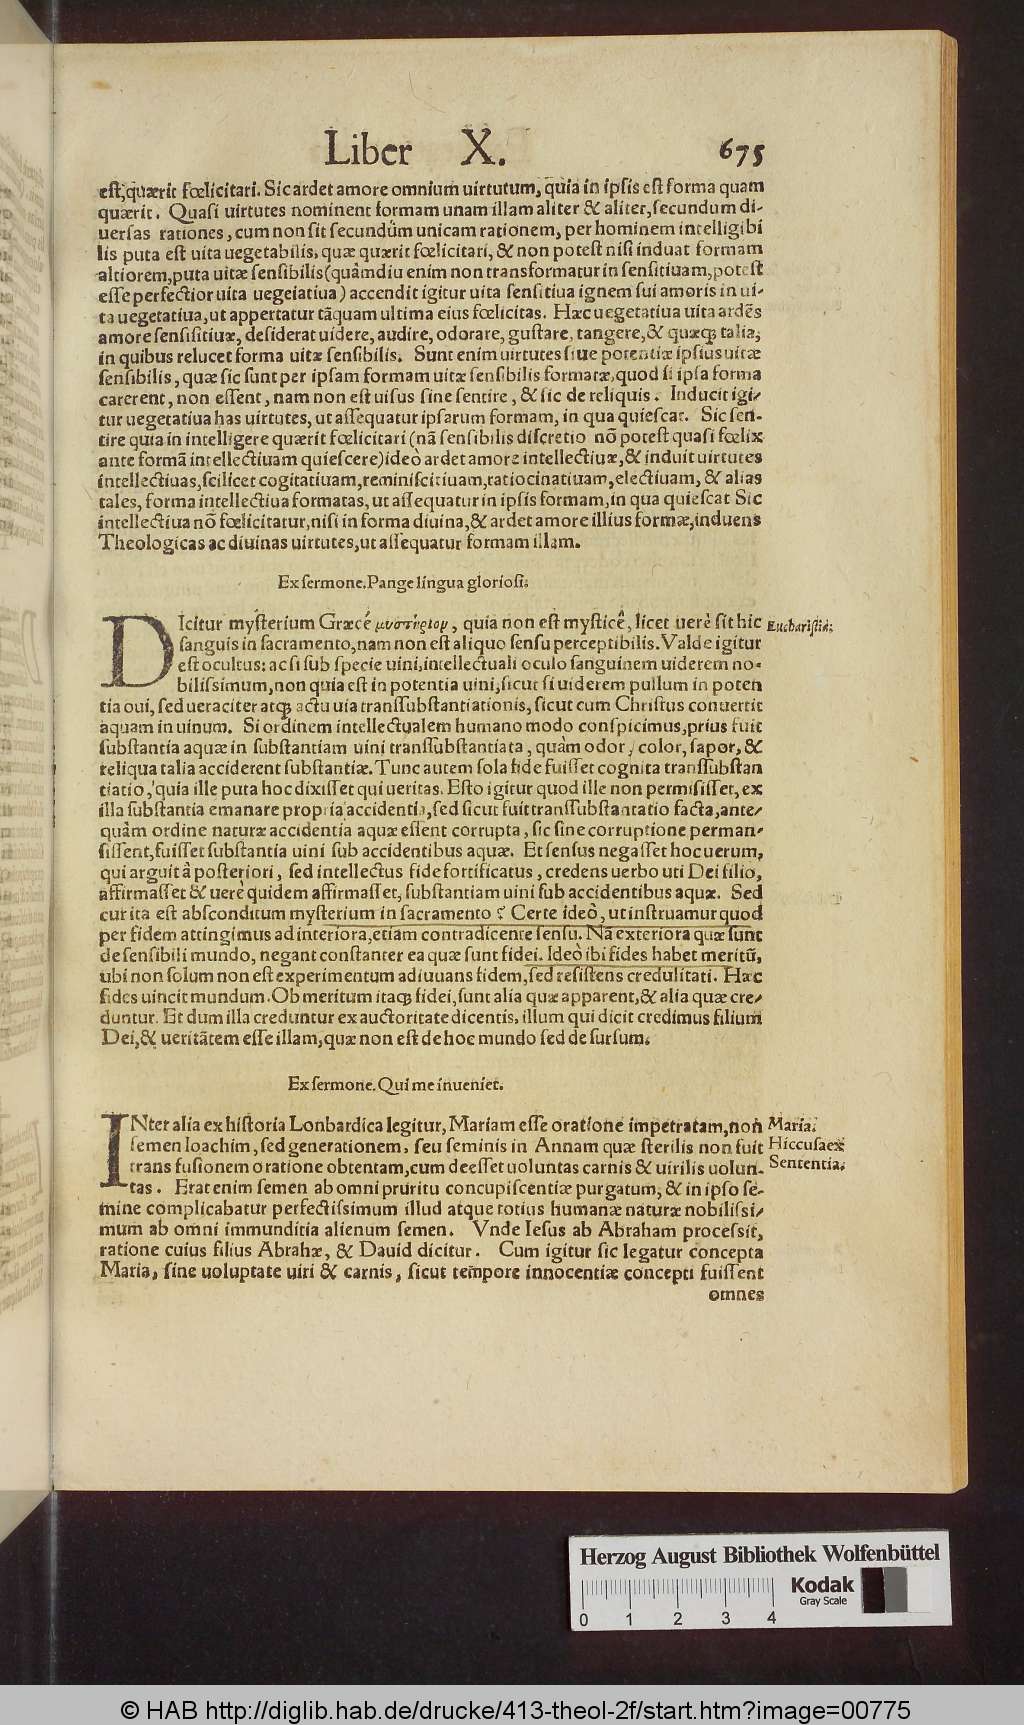 Liber X. 675
est, quærit fœlicitari. Sic ardet amore omnium uirtutum, quia in ipsis est forma quam
quærit. Quasi uirtutes nominent formam unam illam aliter & aliter, secundum di-
uersas rationes, cum non sit secundúm unicam rationem, per hominem intelligibi
lis puta est uita uegetabilis, quæ quærit fœlicitari, & non potest nisi induat formam
altiorem, puta uitæ sensibilis (quàmdiu enim non transformatur in sensitiuam, potest
esse perfectior uita uegeiatiua) accendit igitur uita sensitiua ignem sui amoris in ui-
ta uegetatiua, ut appertatur tãquam ultima eius fœlicitas. Hæc uegetatiua uita ardẽs
amore sensisitiuæ, desiderat uidere, audire, odorare, gustare, tangere, & quæcꝗ talia,
in quibus relucet forma uitæ sensibilis. Sunt enim uirtutes siue potentiæ ipsius uitæ
sensibilis, quæ sic sunt per ipsam formam uitæ sensibilis formatæ, quod si ipsa forma
carerent, non essent, nam non est uisus sine sentire, & sic de reliquis. Inducit igi-
tur uegetatiua has uirtutes, ut assequatur ipsarum formam, in qua quiescat. Sic sen-
tire quia in intelligere quærit fœlicitari (nã sensibilis discretio nõ potest quasi fœlix
ante formã intellectiuam quiescere) ideò ardet amore intellectiuæ, & induit uirtutes
intellectiuas, scilicet cogitatiuam, reminiscitiuam, ratiocinatiuam, electiuam, & alias
tales, forma intellectiua formatas, ut assequatur in ipsis formam, in qua quiescat Sic
intellectiua nõ fœlicitatur, nisi in forma diuina, & ardet amore illius formæ, induens
Theologicas ac diuinas uirtutes, ut assequatur formam illam.
Ex sermone. Pange lingua gloriosi.
DIcitur mysterium Græcé μυστήριον, quia non est mysticê, licet uerè sit hic
Eucharistia.
sanguis in sacramento, nam non est aliquo sensu perceptibilis. Valde igitur
est ocultus: ac si sub specie uini, intellectuali oculo sanguinem uiderem no-
bilissimum, non quia est in potentia uini, sicut si uiderem pullum in poten
tia oui, sed ueraciter atcꝗ actu uia transsubstantiationis, sicut cum Christus conuertit
aquam in uinum. Si ordinem intellectualem humano modo conspicimus, prius fuit
substantia aquæ in substantiam uini transsubstantiata, quàm odor, color, sapor, &
reliqua talia acciderent substantiæ. Tunc autem sola fide fuisset cognita transsubstan
tiatio, quia ille puta hoc dixisset qui ueritas. Esto igitur quod ille non permisisset, ex
illa substantia emanare propria accidentia, sed sicut fuit transsubstantatio facta, ante-
quâm ordine naturæ accidentia aquæ essent corrupta, sic sine corruptione perman-
sissent, fuisset substantia uini sub accidentibus aquæ. Et sensus negasset hoc uerum,
qui arguit à posteriori, sed intellectus fide fortificatus, credens uerbo uti Dei filio,
affirmasset & uerè quidem affirmasset, substantiam uini sub accidentibus aquæ. Sed
cur ita est absconditum mysterium in sacramento? Certe ideò, ut instruamur quod
per fidem attingimus ad interiora, etiam contradicente sensu. Nã exteriora quæ sunt
de sensibili mundo, negant constanter ea quæ sunt fidei. Ideò ibi fides habet meritũ,
ubi non solum non est experimentum adiuuans fidem, sed resistens credulitati. Hæc
fides uincit mundum. Ob meritum itacꝗ fidei, sunt alia quæ apparent, & alia quæ cre-
duntur. Et dum illa creduntur ex auctoritate dicentis, illum qui dicit credimus filium
Dei, & ueritãtem esse illam, quæ non est de hoc mundo sed de sursum.
Ex sermone. Qui me inueniet.
INter alia ex historia Lonbardica legitur, Mariam esse oratione impetratam, non
Maria.
semen Ioachim, sed generationem, seu seminis in Annam quæ sterilis non fuit
Hic cusaex
trans fusionem oratione obtentam, cum deesset uoluntas carnis & uirilis uolun-
Sententia.
tas. Erat enim semen ab omni pruritu concupiscentiæ purgatum, & in ipso se-
mine complicabatur perfectissimum illud atque totius humanæ naturæ nobilissi-
mum ab omni immunditia alienum semen. Vnde Iesus ab Abraham processit,
ratione cuius filius Abrahæ, & Dauid dicitur. Cum igitur sic legatur concepta
Maria, sine uoluptate uiri & carnis, sicut tempore innocentiæ concepti fuissent
omnes
Herzog August Bibliothek Wolfenbüttel
Kodak
Gray Scale
0 1 2 3 4
© HAB http://diglib.hab.de/drucke/413-theol-2f/start.htm?image=00775